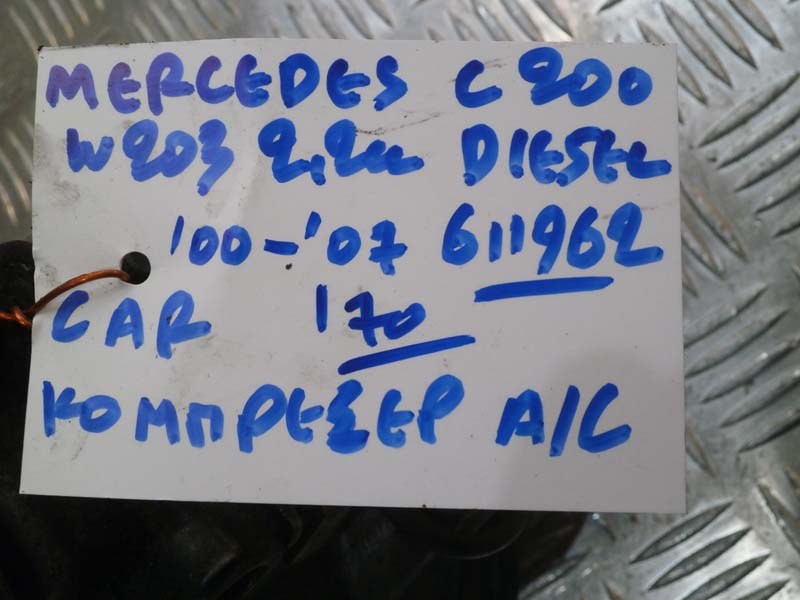 MERCEDES C 200
W203 2,2cc DIESEL
'00-'07 611962
CAR 170
ΚΟΜΠΡΕΣΕΡ A/C